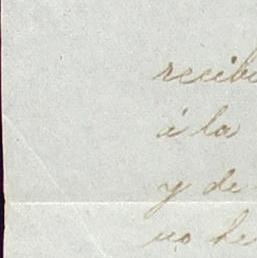 recib
á la
y de
no he